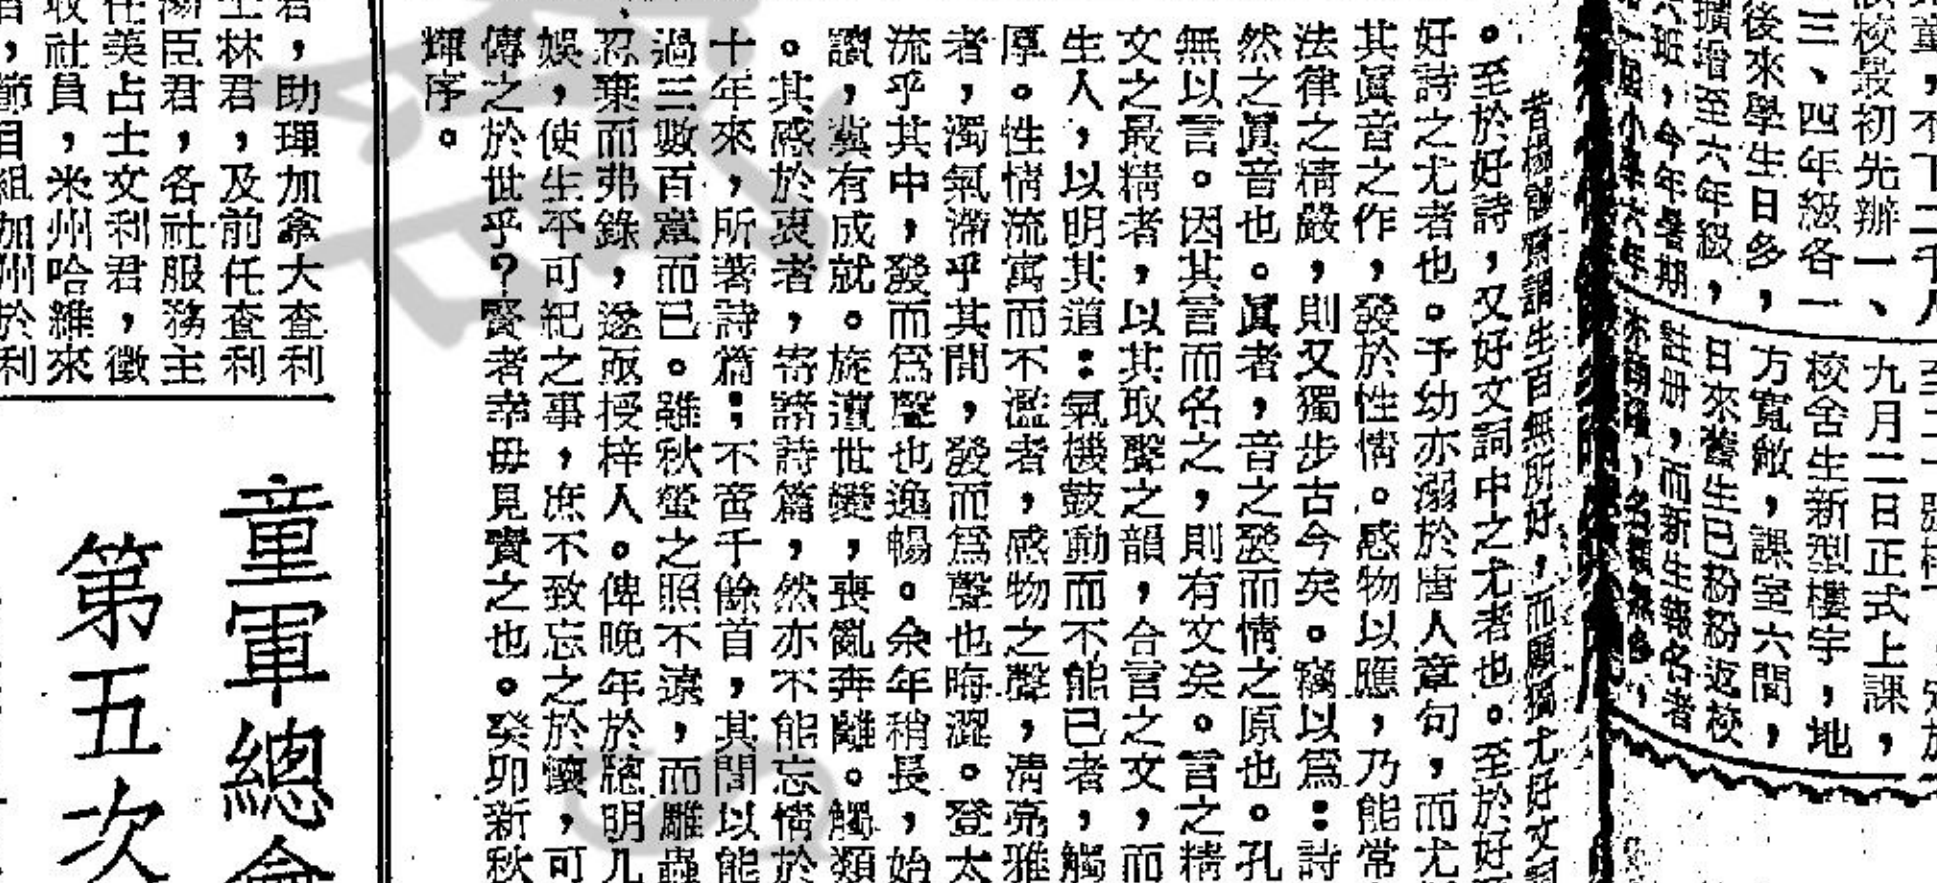 童,不下二千八
該校最初先辦一、
三、四年級各一
後來學生日多,
擴增至六年級,
班,今年暑期
九月二日正式上課,
校舍生新型樓宇,地
方寬敞,課室六間,
日來舊生已紛紛返校
註册,而新生報名者
謂生百無所好,而顧獨尤好文詞
。至於好詩,又好文詞中之尤者也。至於好
好詩之尤者也。予幼亦溺於唐人章句,而尤
其眞音之作,發於性情。感物以應,乃能常
法律之精嚴,則又獨步古今矣。竊以爲:詩
然之眞音也。眞者,音之發而情之原也。孔
無以言。因其言而名之,則有文矣。言之精
文之最精者,以其取聲之韻,合言之文,而
生人,以明其道:氣機鼓動而不能已者,觸
厚。性情流寓而不濫者,感物之聲,清亮雅
者,濁氣滯乎其間,發而爲聲也晦澀。登太
流乎其中,發而爲聲也逸暢。余年稍長,始
讀,冀有成就。旋遭世變,喪亂奔離。觸類
。其感於衷者,寄諸詩篇,然亦不能忘情於
十年來,所著詩篇:不啻千餘首,其間以能
過三數百章而已。雖秋螢之照不遠,而雕蟲
忍棄而弗錄,遂亟授梓人。俾晚年於聰明几
娛,使生平可紀之事,庶不致忘之於懷,可
傳之於世乎?賢者幸毋見責之也。癸卯新秋
輝序。
君,助理加拿大查利
林君,及前任查利
臣君,各社服務主
任美占士文利君,徵
收社員,米州哈維來
,節目組加州於利
童軍總會
第五次